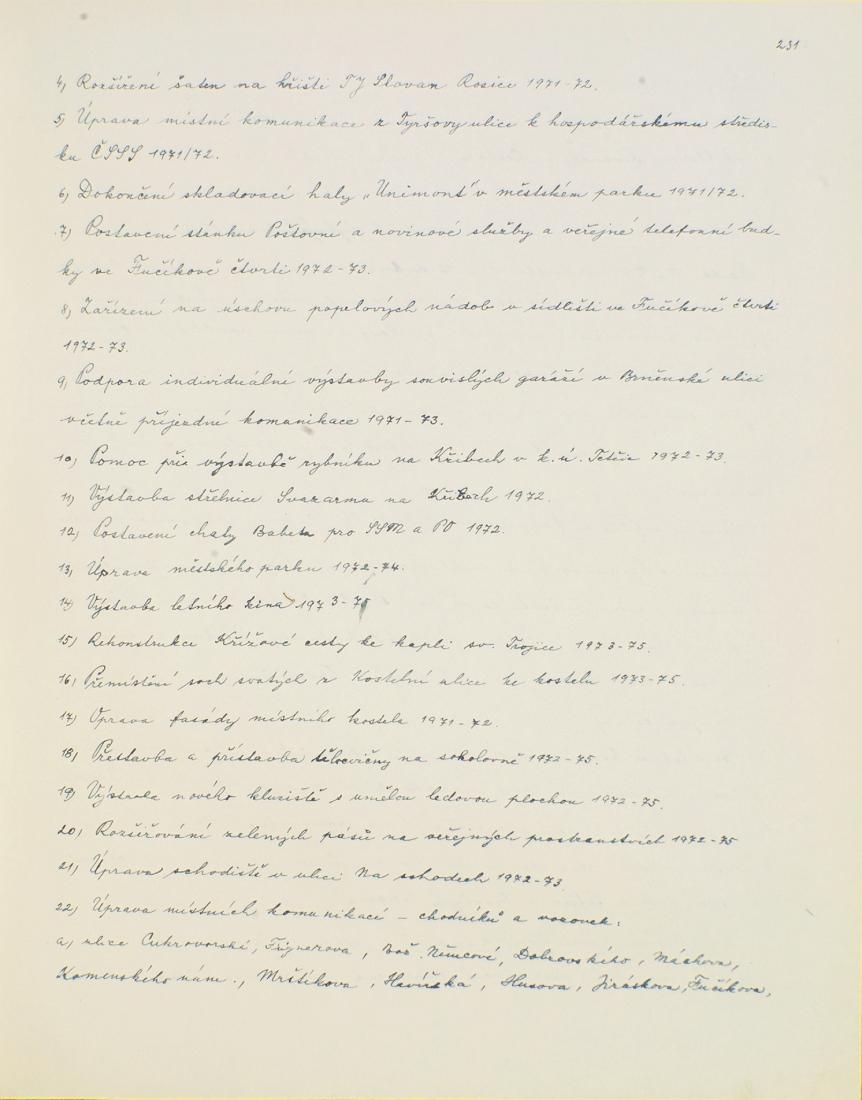 231
4, Rozšíření šaten na hřišti TJ Slovan Rosice 1971-72.
5, Úprava místní komunikace z Tyršovy ulice k hospodářskému středis-
ku ČSSS 1971/72.
6, Dokončení skladovací haly „Unimont" v městském parku 1971/72.
7, Postavení stánku Poštovní a novinové služby a veřejné telefonní bud-
ky ve Fučíkově čtvrti 1972-73.
8, Zařízení na úschovu popelových nádob v sídlišti ve Fučíkově čtvrti
1972-73.
9, Podpora individuální výstavby souvislých garáží v Brněnské ulici
včetně příjezdné komunikace 1971-73.
10, Pomoc při výstavbě rybníku na Křibech v k.ú. Tetčic 1972-73.
11, Výstavba střelnice Svazarmu na Křibech 1972.
12, Postavení chaty Babeta pro SSM a PO 1972.
13, Úprava městského parku 1972-74.
14, Výstavba letního kina 1973-75
15, Rekonstrukce Křížové cesty ke kapli sv. Trojice 1973-75.
16, Přemístění soch svatých z Kostelní ulice ke kostelu 1973-75.
17, Oprava fasády místního kostela 1971-72.
18, Přestavba a přístavba tělocvičny na sokolovně 1972-75.
19, Výstavba nového kluziště s umělou ledovou plochou 1972-75.
20, Rozšiřování zelených pásů na veřejných prostranstvích 1972-75
21, Úprava schodiště v ulici Na schodech 1972-73.
22, Úprava místních komunikací - chodníků a vozovek:
a, ulice Cukrovarská, Fügnerova, Bož. Němcové, Dobrovského, Máchova,
Komenského nám., Mrštíkova, Havířská, Husova, Jiráskova, Fučíkova,